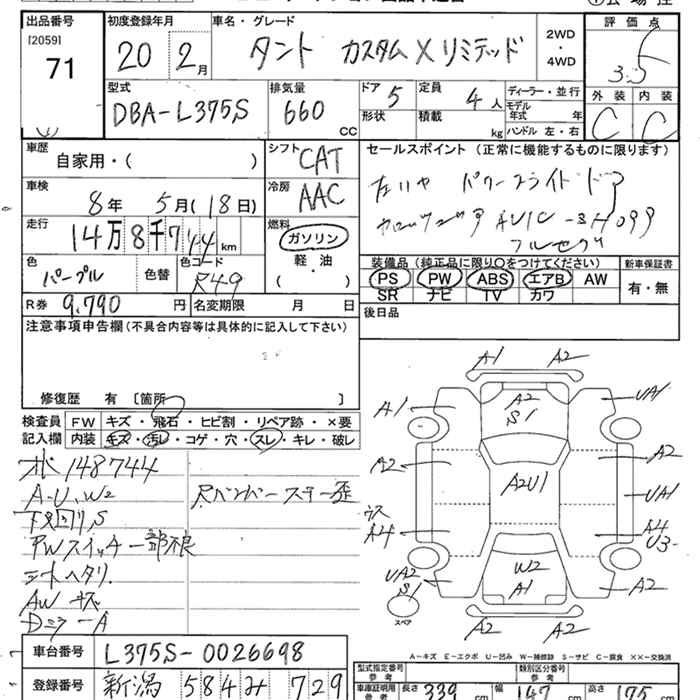 出品番号 初度登録年月 車名・グレード 2WD・4WD 評価点
[2059]
71 20 2月 タント カスタム X リミテッド 3.5
型式 排気量 ドア 5 定員 4人 ディーラー・並行 外装 内装
DBA-L375S 660 CC 形状 積載 kg モデル年式 年 C C
ハンドル 左・右
車歴 シフト セールスポイント (正常に機能するものに限ります)
自家用・( ) CAT
車検 8年 5月(18日) 冷房 AAC パワースライドドア
走行 14万8千744km 燃料 AVIC
ガソリン フルセグ
色 パープル 色替 色コード R49 軽油 ( )
装備品 (純正品に限り○をつけてください) 新車保証書
PS PW ABS エアB AW 有・無
SR ナビ TV カワ
R券 9,790円 名変期限 月 日
後日品
注意事項申告欄 (不具合内容等は具体的に記入して下さい)
修復歴 有 [箇所 ]
検査員記入欄 FW キズ・飛石・ヒビ割・リペア跡・×要
内装 キズ・汚レ・コゲ・穴・スレ・キレ・破レ
148744
A・U、W2 Rバンパーステー歪
下回りS
PWスイッチ一部不良
シートヘタリ
AW キズ
DミラーA
A1 A2
A1 A2 S1 UA1
A2 A2
A2U1 UA1
A4 A4 U3
UA2 S1 W2 A1 A2
スペア A2 A2
A-キズ E-エクボ U-凹み W-補修跡 S-サビ C-腐食 ××-交換済
車台番号 L375S-0026698
登録番号 新潟 584 み 729
型式指定番号 参考 類別区分番号 参考
車庫証明用 参考 長さ 339cm 幅 147cm 高さ 175cm